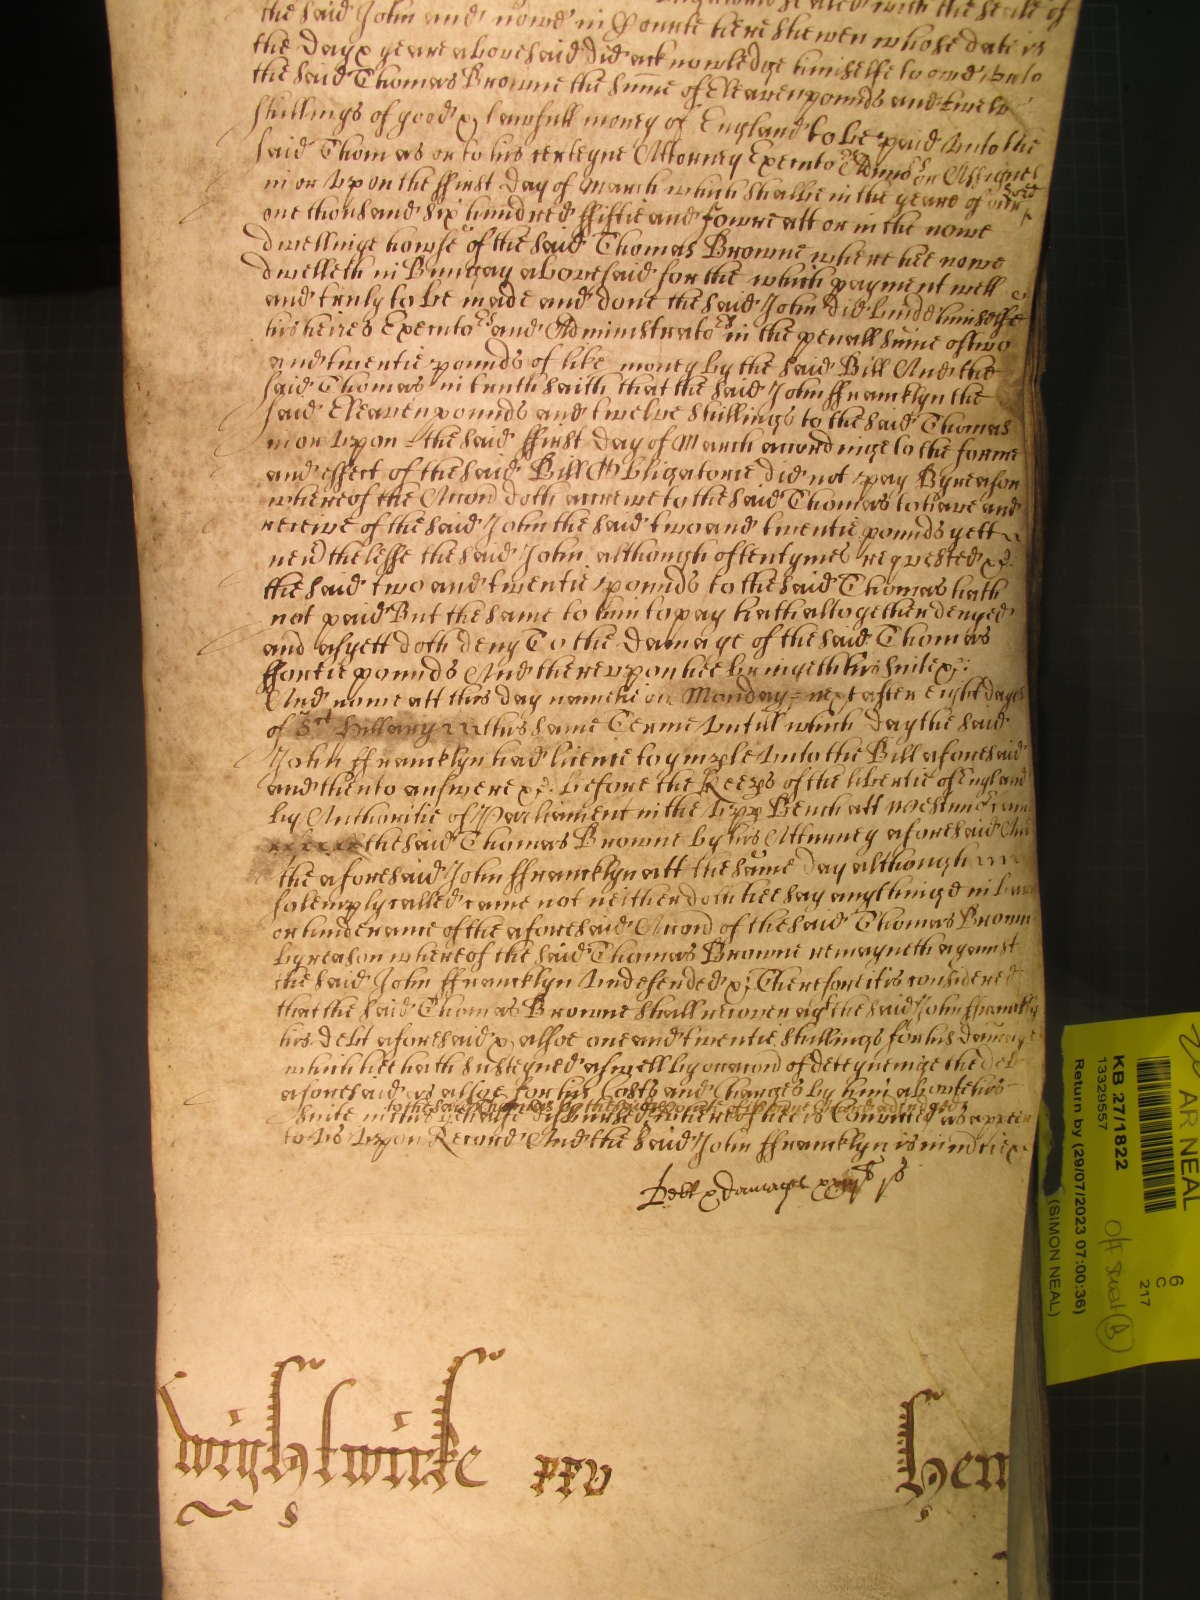 the said John and nowe in Courte here shewen whose date is
the day & yeare abovesaid did acknowledge himselfe to owe unto
the said Thomas Browne the sume of Eleaven pounds and twelve
shillings of good & lawfull money of England to be paid unto the
said Thomas or to his certeyne Attorney Executors Admrs or Assignes
in or upon the ffirst day of March which shalbe in the yeare of our
one thousand six hundred ffiftie and fowre att or in the nowe
dwellinge howse of the said Thomas Browne where hee nowe
dwelleth in Bungay abovesaid for the which payment well
and truly to be made and done the said John did binde himselfe
his heires Executors and Administrators in the penall sume of two
and twentie pounds of like money by the said Bill And the
said Thomas in truth saith that the said John ffrancklyn the
said Eleaven pounds and twelve shillings to the said Thomas
in or upon the said ffirst day of March accordinge to the forme
and effect of the said Bill Obligatorie did not pay By reason
whereof the Accon doth accrewe to the said Thomas to have and
receive of the said John the said two and twentie pounds yett
nevertheless the said John although oftentymes requested &c.
the said two and twentie pounds to the said Thomas hath
not paid But the same to him to pay hath altogether denyed
and as yett doth deny To the damage of the said Thomas
ffortie pounds And thereupon hee bringeth his suite &c:
And nowe att this day namelie on Monday next after eight dayes
of St Hillary in this same Terme untill which day the said
John ffrancklyn had licence to imple unto the Bill aforesaid
and then to answere &c. before the Keeps of the libertie of England
by Authoritie of Parliament in the upp Bench att Westminster came
the said Thomas Browne by his Attorney aforesaid And
the aforesaid John ffrancklyn att the same day although
solemply called came not neither doth hee say anythinge in barr
or hinderance of the aforesaid Accon of the said Thomas Browne
by reason whereof the said Thomas Browne remayneth against
the said John ffrancklyn undefended &c Therefore it is considered
that the said Thomas Browne shall recover agt the said John ffrancklyn
his debt aforesaid & alsoe one and twentie shillings for his damages
which hee hath susteyned aswell by occacon of deteyneinge the debt
aforesaid as alsoe for his Costs and Charges by him about his
suite in this behalfe disbursed whereof hee is Convicted as appeareth
to us upon Record And the said John ffrancklyn is in mercie &c
Debt & damages xxiijli js
Wightwicke xxv Hen
AR NEAL
KB 27/1822
13329557
Return by (29/07/2023 07:00:36)
(SIMON NEAL)
6
C
217